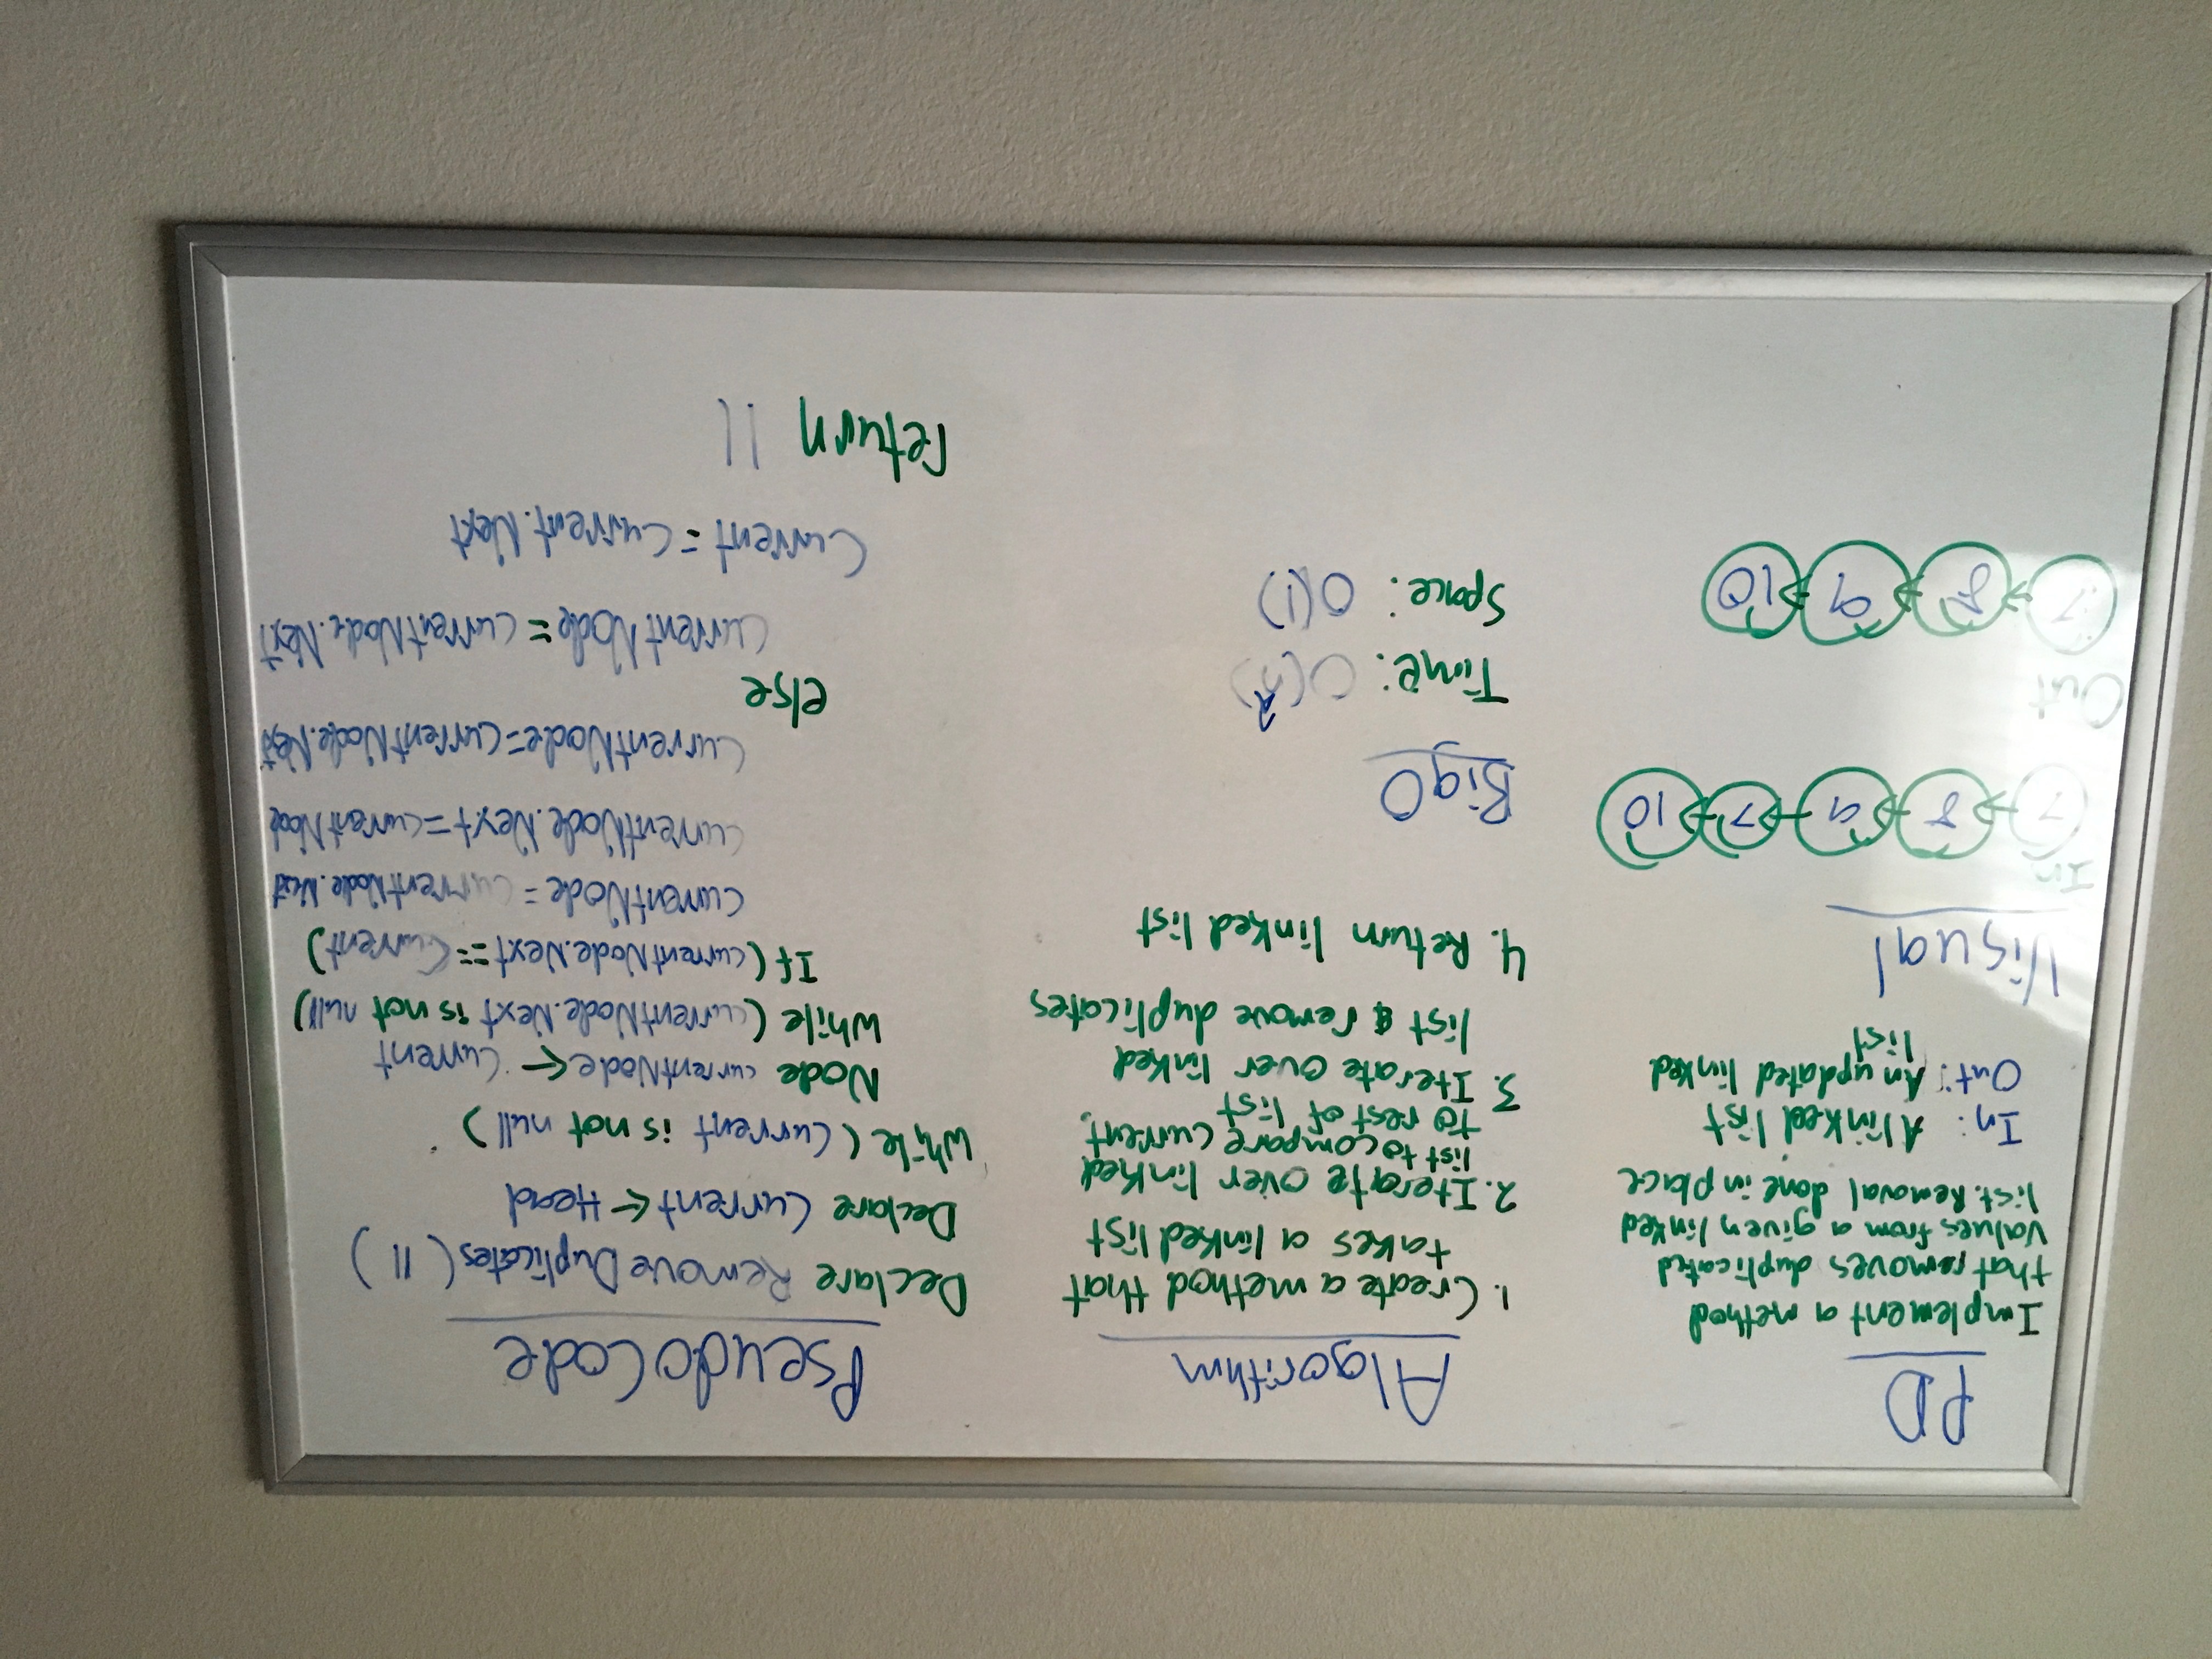 PD
Implement a method
that removes duplicated
values from a given linked
list. Removal done in place
In: A linked list
Out: An updated linked
list
Visual
In
7 8 9 7 10
Out
7 8 9 10
Algorithm
1. Create a method that
takes a linked list
2. Iterate over linked
list to compare current
to rest of list
3. Iterate over linked
list & remove duplicates
4. Return linked list
Big O
Time: O(n²)
Space: O(1)
PseudoCode
Declare RemoveDuplicates( ll )
Declare Current ← Head
While ( Current is not null )
Node currentNode ← Current
While (currentNode.Next is not null)
If (currentNode.Next == Current)
currentNode = currentNode.Next
currentNode.Next = currentNode
currentNode = currentNode.Next
else
currentNode = currentNode.Next
Current = Current.Next
return ll